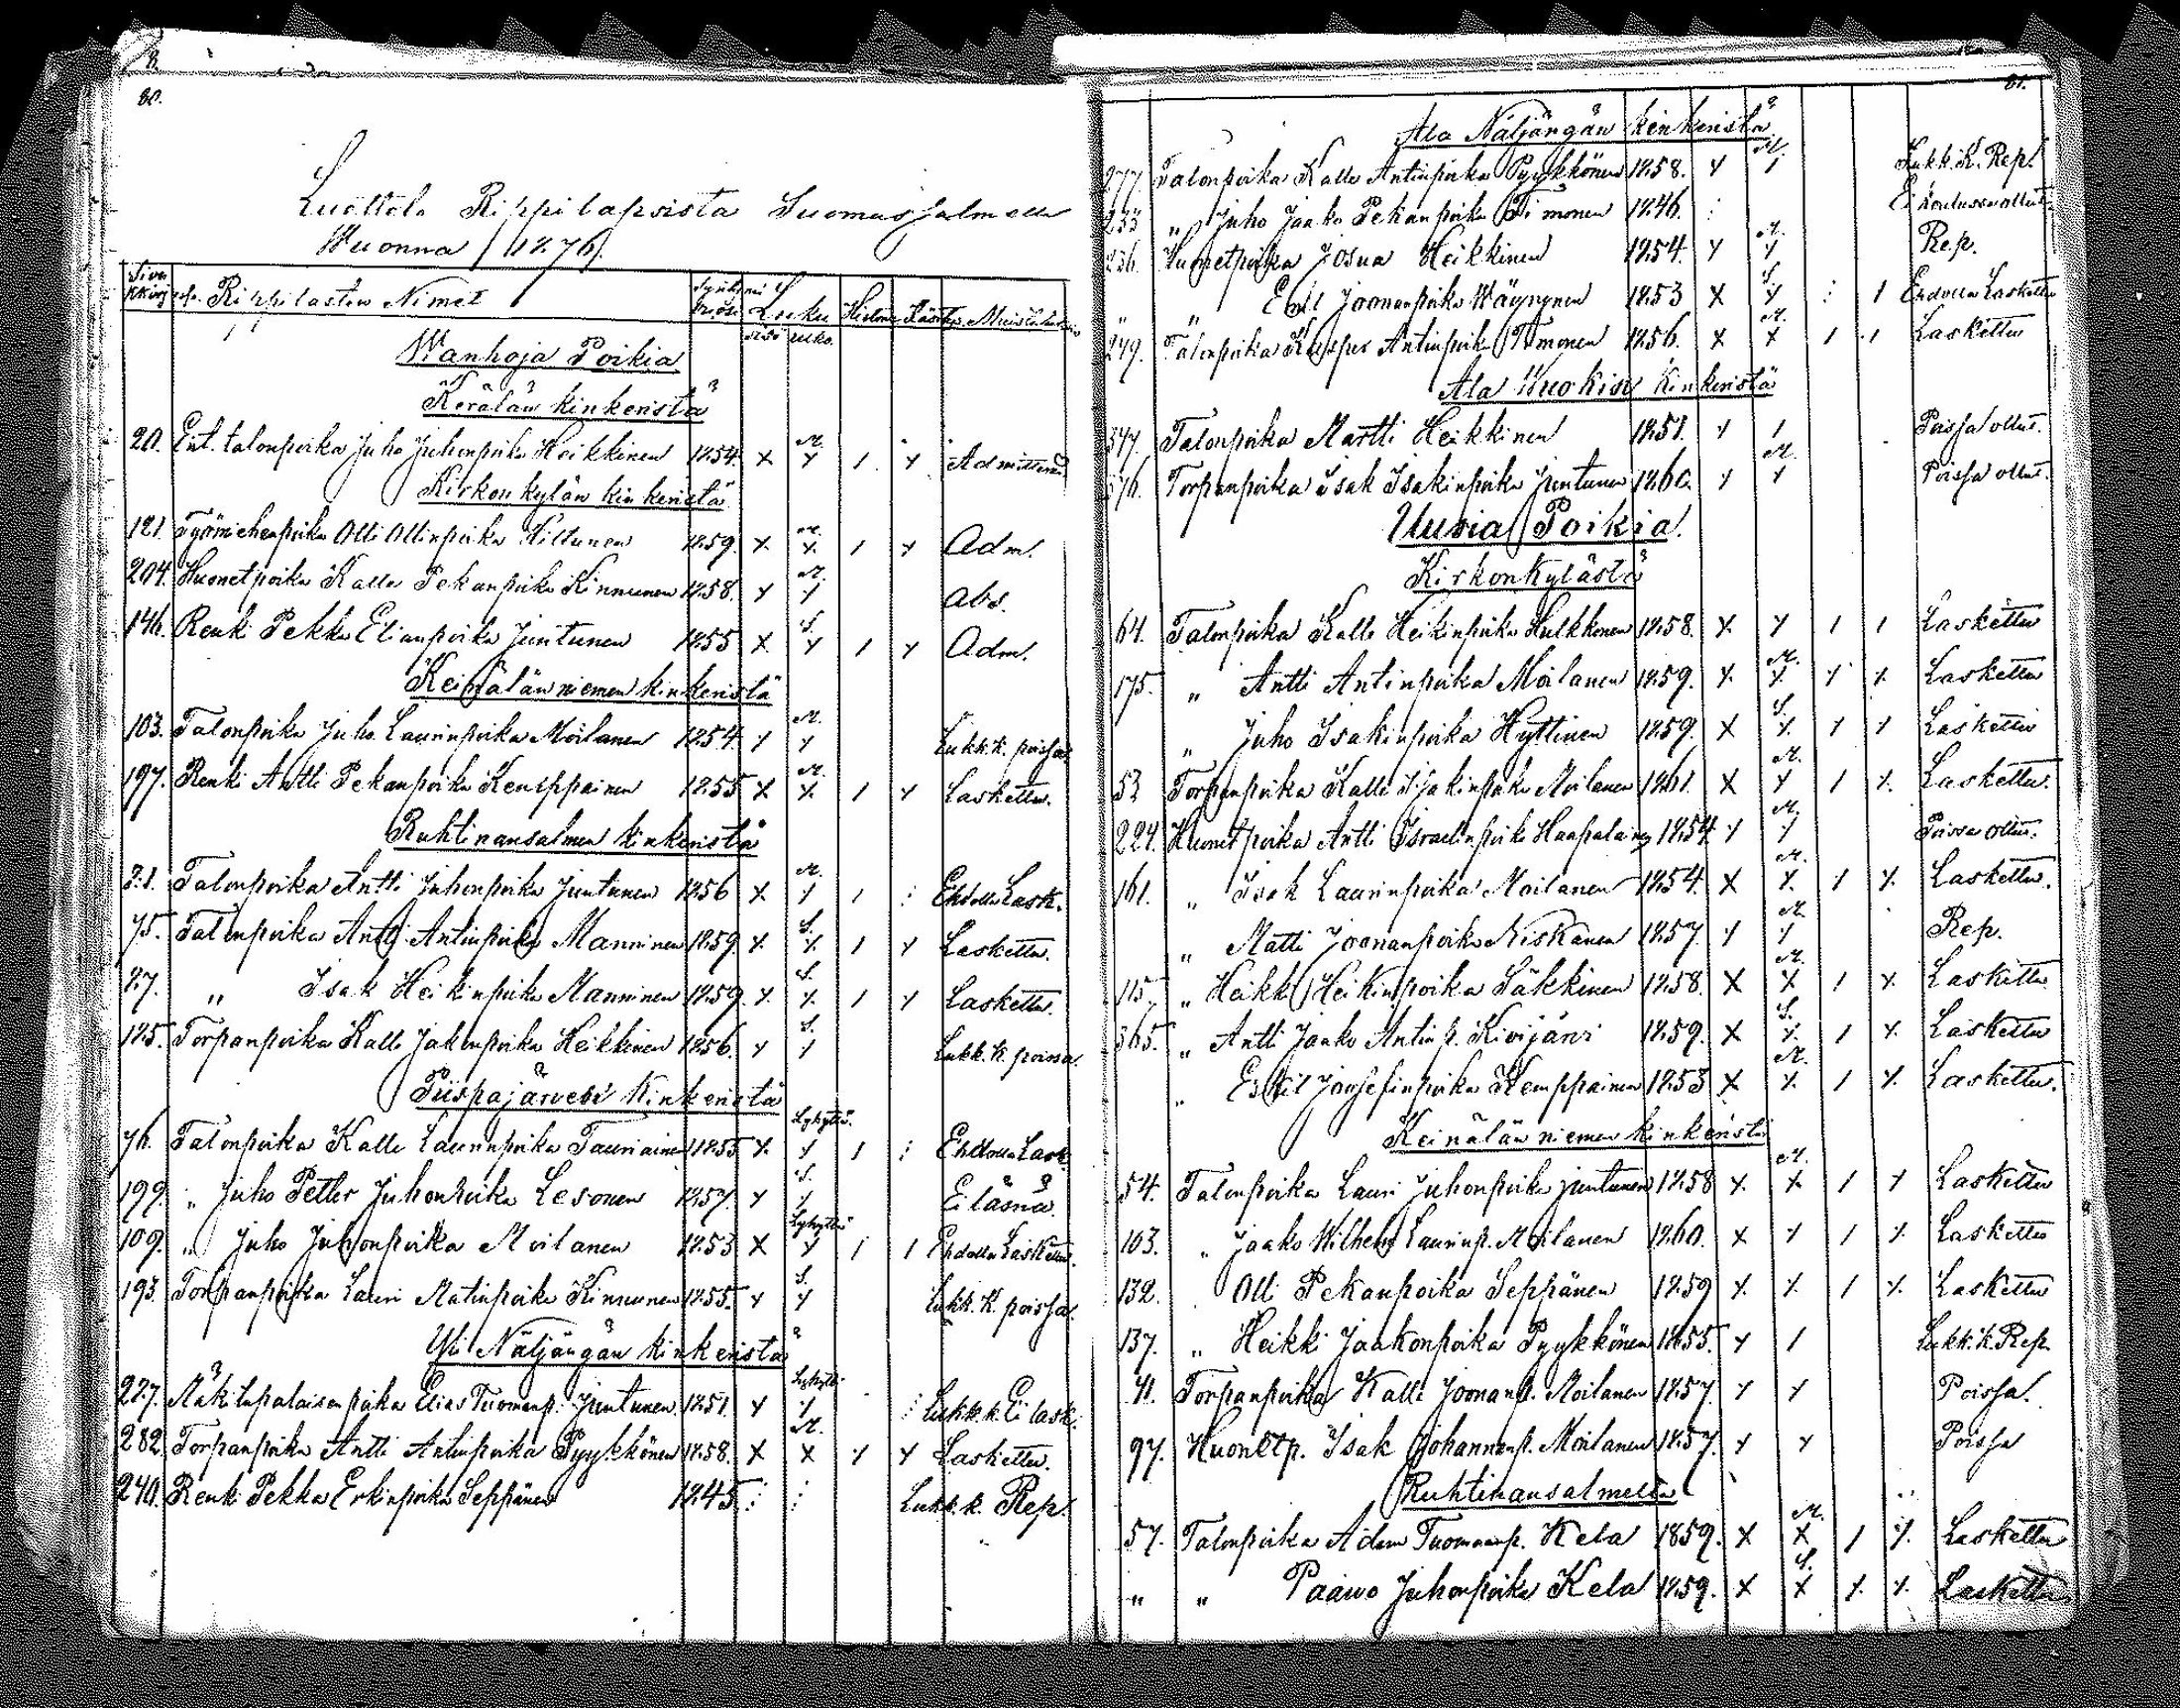 80.
Luettelo Rippilapsista Suomussalmella
Wuonna 1876.
Rippilasten Nimet Luku Histor. Käsitys Muistutuksia
sisä ulko.
Wanhoja Poikia
Kerälän kinkeristä
20. Ent. talonpoika Juho Juhonpoika Heikkinen 1854. X M. Y 1 Y Admitteras
Kirkonkylän kinkeristä
121. Työmiehenpoika Olli Ollinpoika Kiltunen 1859. X M. X 1 Y Adm.
204. Huonetpoika Kalle Pekanpoika Kinnunen 1858. Y M. Y Abs.
146. Renki Pekka Elianpoika Juntunen 1855 X S. Y 1 Y Adm.
Keinälänniemen kinkeristä
103. Talonpoika Juho Laurinpoika Moilanen 1854 Y M. Y Lukk.k. poissa
197. Renki Antti Pekanpoika Kemppainen 1855 X M. X 1 Y Laskettu.
Ruhtinansalmen kinkeristä
Talonpoika Antti Juhonpoika Juntunen 1856 X M. Y 1 : Ehdolla Lask.
75. Talonpoika Antti Antinpoika Manninen 1859. X S. X 1 Y Laskettu.
87. „ Isak Heikinpoika Manninen 1859. X S. X 1 Y Laskettu.
185. Torpanpoika Kalle Jakonpoika Heikkinen 1856. Y S. Y Lukk.k. poissa.
Piispajärven kinkeristä
76. Talonpoika Kalle Laurinpoika Tauriainen 1855 X Lyhyttä. Y 1 : Ehdolla Lask.
199. „ Juho Petter Juhonpoika Lesonen 1857. Y S. Y Ei läsnä.
109. „ Juho Juhonpoika Moilanen 1853 X Lyhyttä Y 1 1 Ehdolla Laskettu.
193. Torpanpoika Lauri Matinpoika Kinnunen 1855. Y S. Y Lukk.k. poissa.
Yli Näljängän kinkeristä
227. Mäkitupalaisenpoika Elias Tuomanp. Juntunen 1851 Y Lyhyttä Y : Lukk.k. Ei lask.
282. Torpanpoika Antti Antinpoika Pyykkönen 1858. X M. X Y Y Laskettu.
240. Renki Pekka Erkinpoika Seppänen 1845 : : Lukk.k. Rep.
81.
Ala Näljängän kinkeristä
277. Talonpoika Kalle Antinpoika Pyykkönen 1858. Y M. 1 Lukk.K. Rep.
233 „ Juho Jaako Pekanpoika Timonen 1846. : Ei koulussa ollut
236. Huonetpoika Josua Heikkinen 1854. Y M. Y Rep.
„ „ Emil Joonanpoika Wäyrynen 1853 X S. Y : 1 Ehdolla Laskettu
249. Talonpoika Kasper Antinpoika Timonen 1856. X M. X 1 1 Laskettu
Ala Wuokin kinkeristä
347. Talonpoika Martti Heikkinen 1851. Y 1 Poissa ollut.
376. Torpanpoika Isak Isakinpoika Juntunen 1860. Y M. Y Poissa ollut.
Uusia Poikia.
Kirkonkylästä
64. Talonpoika Kalle Heikinpoika Hulkkonen 1858. X Y 1 1 Laskettu
175. „ Antti Antinpoika Moilanen 1859. X M. X Y X Laskettu
„ Juho Isakinpoika Hyttinen 1859. X S. X 1 Y Laskettu
53 Torpanpoika Kalle Isakinpoika Moilanen 1861. X M. Y 1 X Laskettu.
224. Huonetpoika Antti Israelinpoika Haapalainen 1854 Y M. Y Poissa ollut.
161. „ Isak Laurinpoika Moilanen 1854. X M. X 1 X Laskettu.
„ Matti Joonanpoika Niskanen 1857. Y M. Y Rep.
115. „ Heikki Heikinpoika Säkkinen 1858. X M. X 1 X Laskettu
365. „ Antti Jaako Antinp. Kivijärvi 1859. X S. X 1 X Laskettu
„ Eskil Joosefinpoika Kemppainen 1853 X M. X 1 X Laskettu.
Keinälänniemen kinkeristä
54. Talonpoika Lauri Juhonpoika Juntunen 1858 X M. X 1 Y Laskettu
103. „ Jaako Wilhelm Laurinp. Moilanen 1860. X Y 1 X Laskettu
132. Olli Pekanpoika Seppänen 1859 X X 1 X Laskettu
137. „ Heikki Jaakonpoika Pyykkönen 1855. Y 1 Lukk.k. Rep.
Torpanpoika Kalle Joonanp. Moilanen 1857. Y Y Poissa.
97. Huonetp. Isak Johannenp. Moilanen 1857. Y Y Poissa
Ruhtinansalmelta
57. Talonpoika Adam Tuomanp. Kela 1859. X M. X 1 X Laskettu
„ „ Paawo Juhonpoika Kela 1859. X S. X X X Laskettu